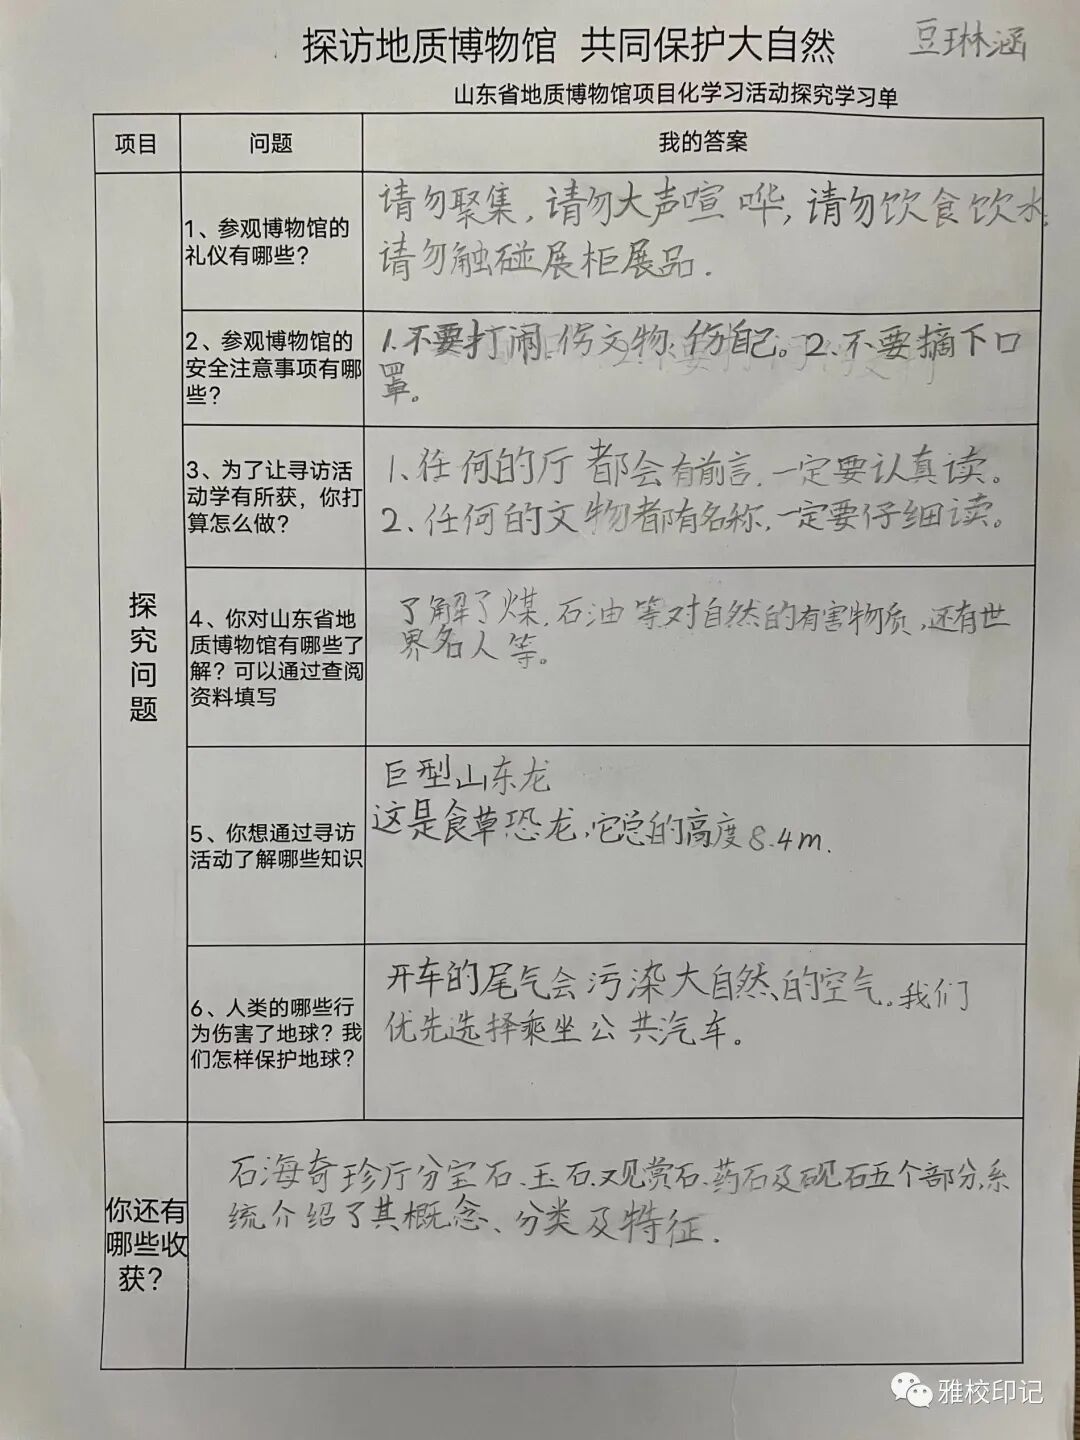 探访地质博物馆 共同保护大自然
豆琳涵
山东省地质博物馆项目化学习活动探究学习单
项目
问题
我的答案
探究问题
1、参观博物馆的
礼仪有哪些？
请勿聚集，请勿大声喧哗，请勿饮食饮水，
请勿触碰展柜展品．
2、参观博物馆的
安全注意事项有哪
些？
1.不要打闹 伤文物 伤自己。2.不要摘下口
罩。
3、为了让寻访活
动学有所获，你打
算怎么做？
1、任何的厅都会有前言，一定要认真读。
2、任何的文物都有名称，一定要仔细读。
4、你对山东省地
质博物馆有哪些了
解？可以通过查阅
资料填写
了解了煤，石油等对自然的有害物质，还有世
界名人等。
5、你想通过寻访
活动了解哪些知识
巨型山东龙
这是食草恐龙，它总的高度8.4m．
6、人类的哪些行
为伤害了地球？我
们怎样保护地球？
开车的尾气会污染大自然的空气。我们
优先选择乘坐公共汽车。
你还有
哪些收
获？
石海奇珍厅分宝石、玉石、观赏石、药石及砚石五个部分，系
统介绍了其概念、分类及特征．
雅校印记